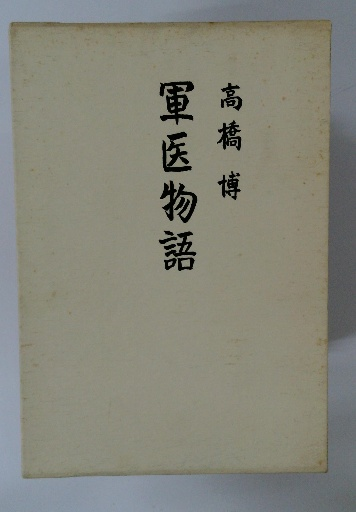 高橋博
軍医物語